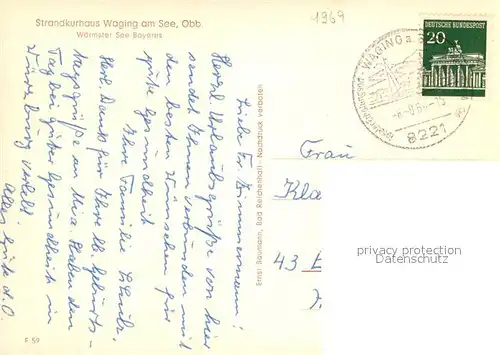 Strandkurhaus Waging am See, Obb.
Wärmster See Bayerns
1969
DEUTSCHE BUNDESPOST
20
WAGING a.
8221
Liebe Fr. Zimmermann!
Herzl. Urlaubsgrüße von hier
sendet Ihnen verbunden mit
den besten Wünschen für
gute Gesundheit
Ihre Familie
Herzl. Dank für Ihre lb. Geburts-
tagsgrüße an Mia. Haben den
Tag bei guter Gesundheit in
Würzburg verlebt.
Alles Gute d. O.
Ernst Baumann, Bad Reichenhall - Nachdruck verboten
Frau
Kla
43
F 59
privacy protection
Datenschutz